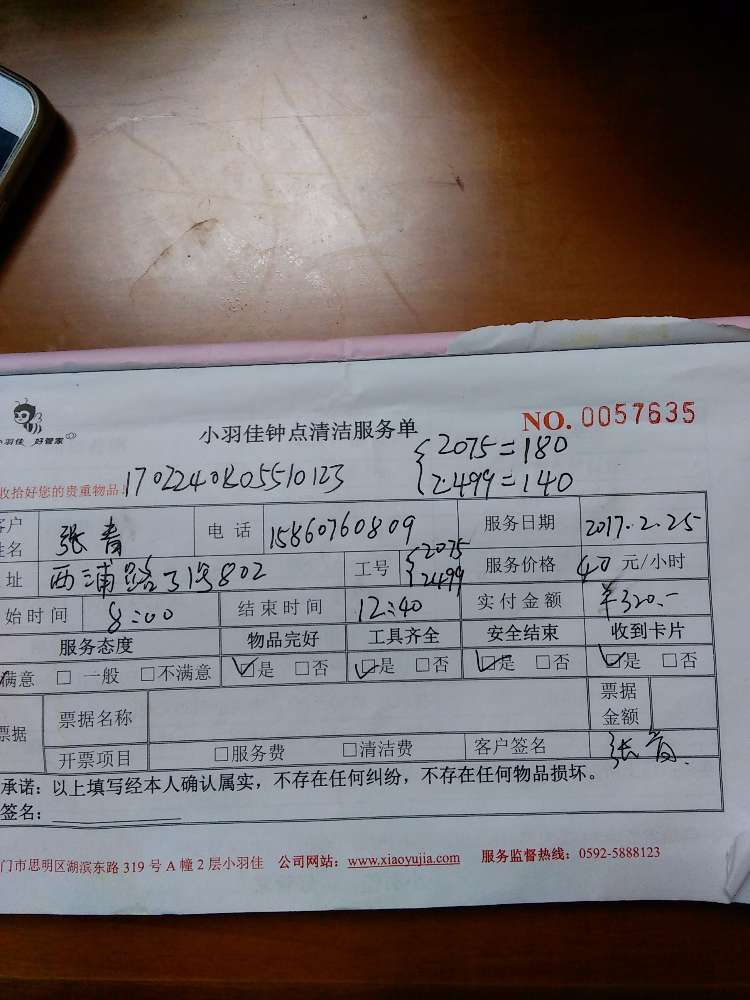 小羽佳 好管家
小羽佳钟点清洁服务单 NO. 0057635
{2075=180
2499=140
收拾好您的贵重物品!
客户姓名 张青 电话 15860760809 服务日期 2017.2.25
址 西浦路 802 工号 {2075 2499 服务价格 40 元/小时
始时间 8:00 结束时间 12:40 实付金额 ¥320.-
服务态度 物品完好 工具齐全 安全结束 收到卡片
满意 □ 一般 □不满意 ☑是 □否 ☑是 □否 ☑是 □否 ☑是 □否
票据 票据名称 票据金额
开票项目 □服务费 □清洁费 客户签名 张青
承诺：以上填写经本人确认属实，不存在任何纠纷，不存在任何物品损坏。
签名：
门市思明区湖滨东路 319 号 A 幢 2 层小羽佳 公司网站：www.xiaoyujia.com 服务监督热线：0592-5888123